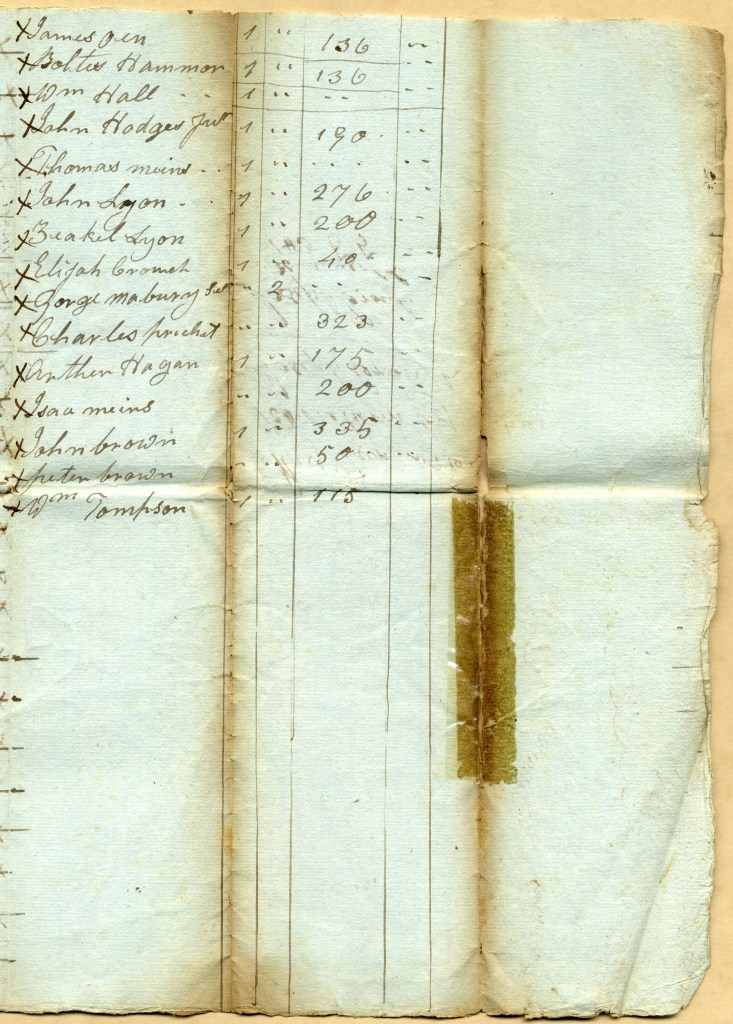 X James gen 1 " 136 "
X Boltes Hammon 1 " 136 "
X Wm Hall 1 " " "
X John Hodges Jur 1 " 190 "
X Thomas meins 1 " " "
X John Lyon 1 " 276 "
X Zeakel Lyon 1 " 200 "
X Elijah Crouch 1 " 40 "
X Gorge mabury Ser " 2 " "
X Charles prichet " " 323 "
X Arther Hagan 1 " 175 "
X Isaa meins " " 200 "
X John brown 1 " 335 "
X peter brown " " 50 "
X Wm Tompson 1 " 115